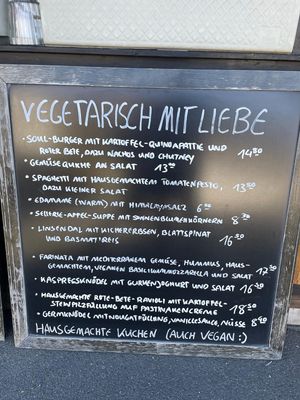 VEGETARISCH MIT LIEBE
• SOUL-BURGER MIT KARTOFFEL-QUINOAPATTIE UND
ROTER BETE, DAZU NACHOS UND CHUTNEY 14.50
• GEMÜSEQUICHE AN SALAT 13.50
• SPAGHETTI MIT HAUSGEMACHTEM TOMATENPESTO,
DAZU KLEINER SALAT 13.50
• EDAMAME (WARM) MIT HIMALAYASALZ
• SELLERIE-APFEL-SUPPE MIT SONNENBLUMENKÖRNERN
• LINSENDAL MIT KICHERERBSEN, BLATTSPINAT
UND BASMATIREIS 16.50
• FARINATA MIT MEDITERRANEM GEMÜSE, HUMMUS, HAUS-
GEMACHTEM, VEGANEN BASILIKUMMOZZARELLA UND SALAT
• KASPRESSKNÖDEL MIT GURKENJOGHURT UND SALAT
• HAUSGEMACHTE ROTE-BETE-RAVIOLI MIT KARTOFFEL-
STEINPILZFÜLLUNG AUF PASTINAKENCREME 18.50
• GERMKNÖDEL MIT NOUGATFÜLLUNG, VANILLESAUCE, NÜSSE
HAUSGEMACHTE KUCHEN (AUCH VEGAN :)